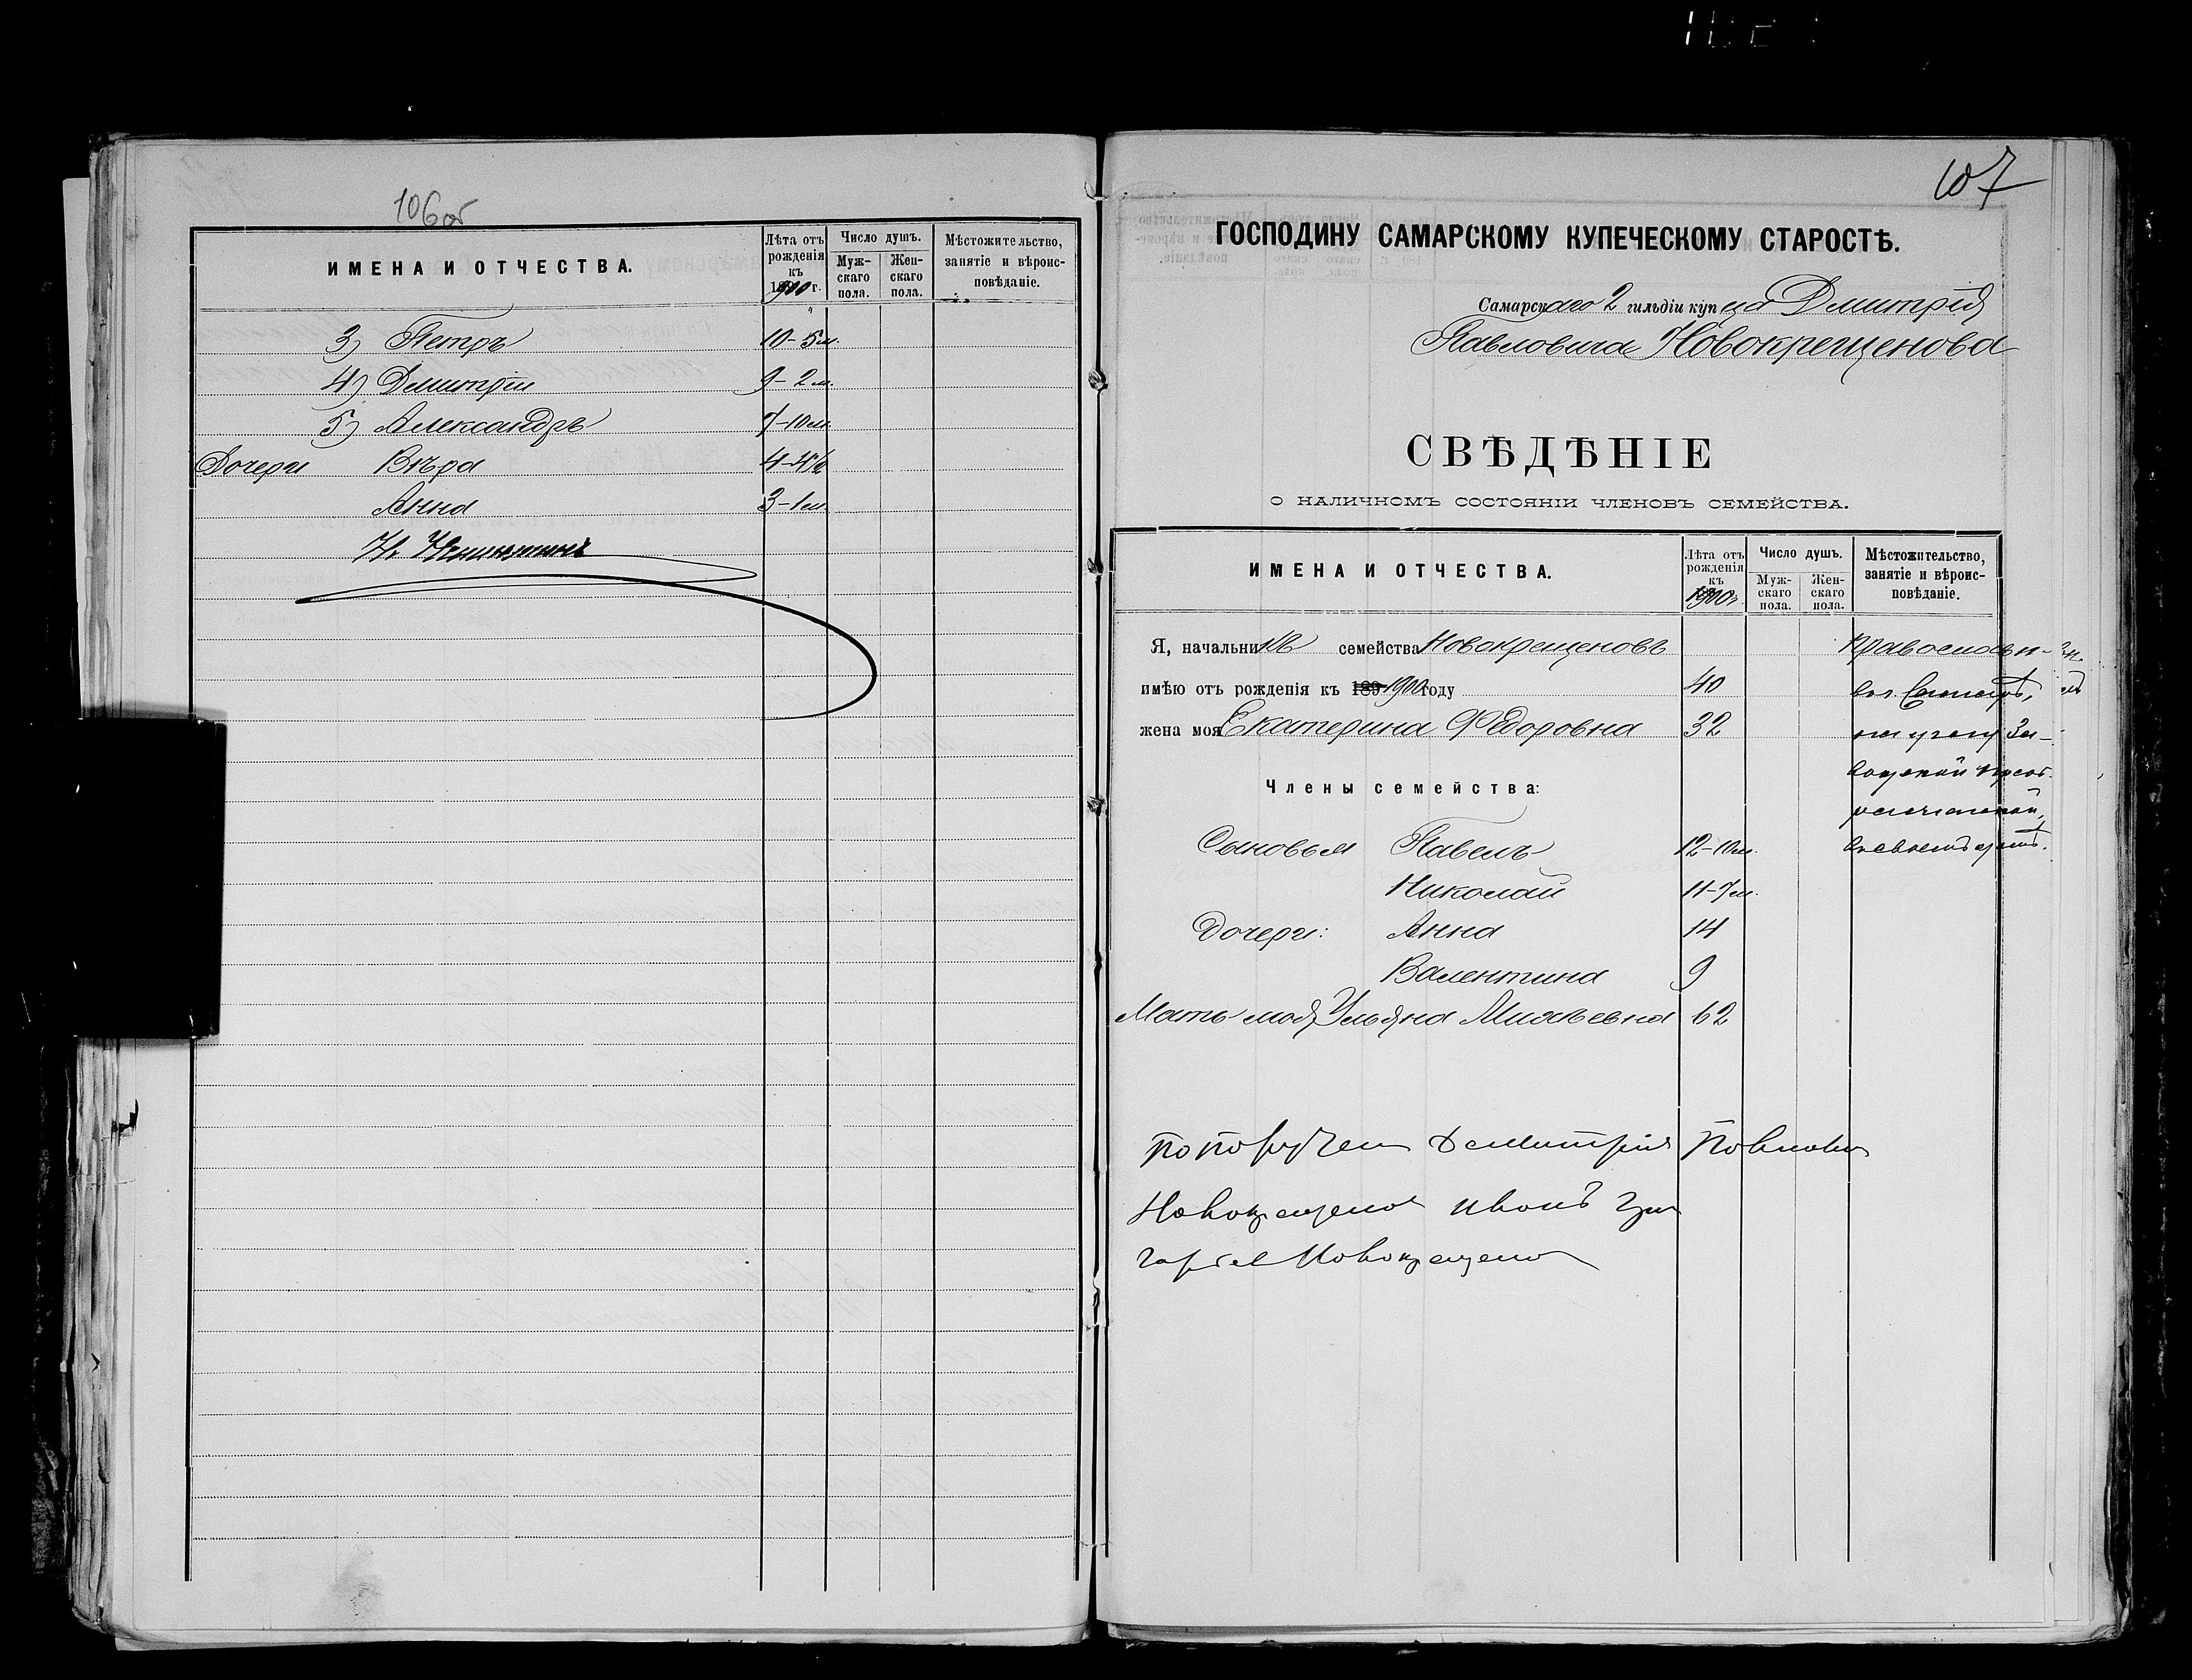 106об
ИМЕНА И ОТЧЕСТВА.
Лѣта отъ рожденія къ 1900 г.
Число душъ.
Мужскаго пола.
Женскаго пола.
Мѣстожительство, занятіе и вѣроисповѣданіе.
3) Петръ 10-5м.
4) Дмитрій 9-2м.
5) Александръ 7-10м.
Дочери Вѣра 4-4½
Анна 3-1м
107
ГОСПОДИНУ САМАРСКОМУ КУПЕЧЕСКОМУ СТАРОСТѢ.
Самарскаго 2 гильдіи купца Дмитрія
Павловича Новокрещенова
СВѢДѢНІЕ
О НАЛИЧНОМЪ СОСТОЯНІИ ЧЛЕНОВЪ СЕМЕЙСТВА.
ИМЕНА И ОТЧЕСТВА.
Лѣта отъ рожденія къ 1900 г
Число душъ.
Мужскаго пола.
Женскаго пола.
Мѣстожительство, занятіе и вѣроисповѣданіе.
Я, начальникъ семейства Новокрещеновъ
имѣю отъ рожденія къ 189 1900 году 40
жена моя Екатерина Федоровна 32
Члены семейства:
Сыновья Павелъ 12-10м.
Николай 11-7м.
Дочери: Анна 14
Валентина 9
Мать моя Ульяна Михѣевна 62
Дмитрия Павлови
Новокрещено Иванъ Гри
Новокрещено